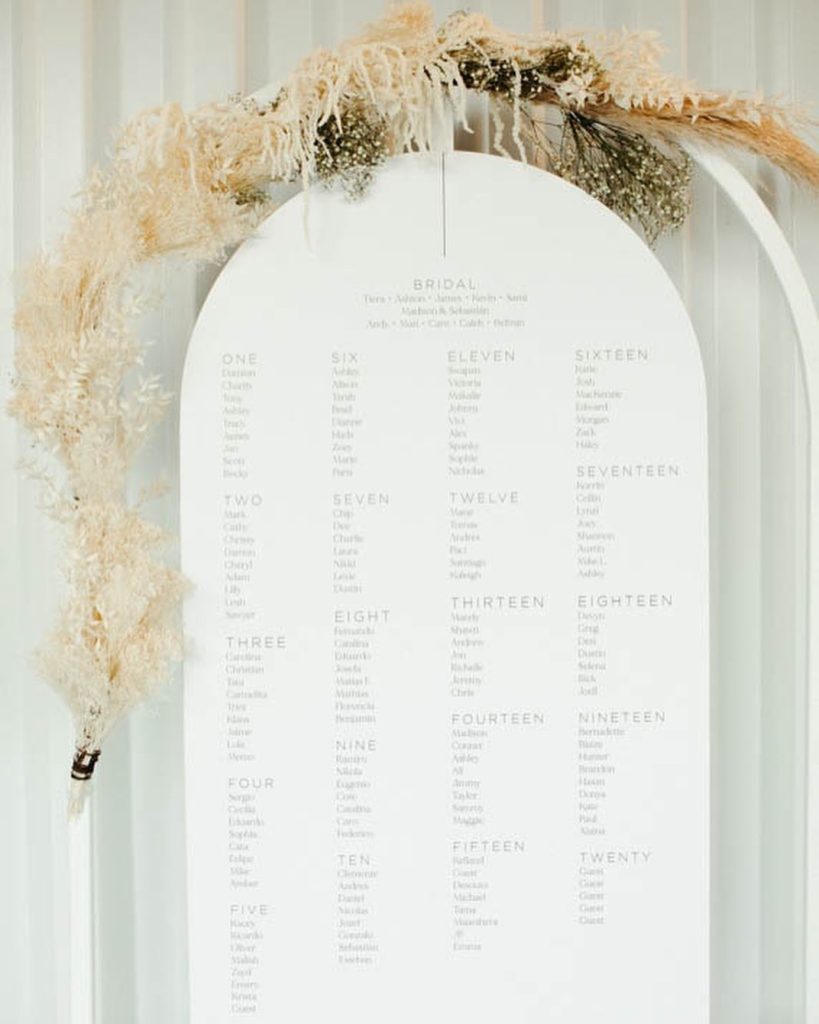 BRIDAL
Tiera • Ashton • James • Kevin • Sami
Madison & Sebastián
Andy • Mari • Caro • Caleb • Beltran
ONE
Damian
Charity
Tony
Ashley
Tracy
James
Jan
Scott
Becky
TWO
Mark
Cathy
Chrissy
Darren
Cheryl
Adam
Lilly
Leah
Sawyer
THREE
Carolina
Christian
Tata
Carmelita
Klaus
Jaime
Lola
Memo
FOUR
Sergio
Cecilia
Eduardo
Sophia
Cata
Felipe
Mike
Amber
FIVE
Kacey
Ricardo
Oliver
Maliah
Zayd
Emery
Krista
Guest
SIX
Ashley
Alison
Brad
Dianne
Mads
Zoey
Mario
Paris
SEVEN
Chip
Dee
Charlie
Laura
Nikki
Lexie
Dustin
EIGHT
Fernando
Catalina
Eduardo
Josefa
Matias F.
Mathias
Florencia
Benjamin
NINE
Ramiro
Nikola
Eugenio
Cote
Catalina
Caro
Federico
TEN
Clemente
Andres
Daniel
Nicolas
Jozef
Gonzalo
Sebastian
Esteban
ELEVEN
Swapan
Victoria
Makalie
Johnny
Vivi
Alex
Spanky
Sophie
Nicholas
TWELVE
Marie
Tomas
Andres
Paci
Santiago
Raleigh
THIRTEEN
Mandy
Shawn
Andrew
Jon
Richelle
Jeremy
Chris
FOURTEEN
Madison
Conner
Ashley
Ali
Jimmy
Taylor
Sammy
Maggie
FIFTEEN
Guest
Michael
Tama
JP
Emma
SIXTEEN
Katie
Josh
MacKenzie
Edward
Morgan
Zack
Haley
SEVENTEEN
Korrin
Collin
Lynzi
Joey
Shannon
Austin
Mike L.
Ashley
EIGHTEEN
Devyn
Greg
Desi
Dustin
Selena
Rick
Jodi
NINETEEN
Bernadette
Blaize
Hunter
Brandon
Hasan
Donya
Kate
Paul
Alaina
TWENTY
Guest
Guest
Guest
Guest
Guest